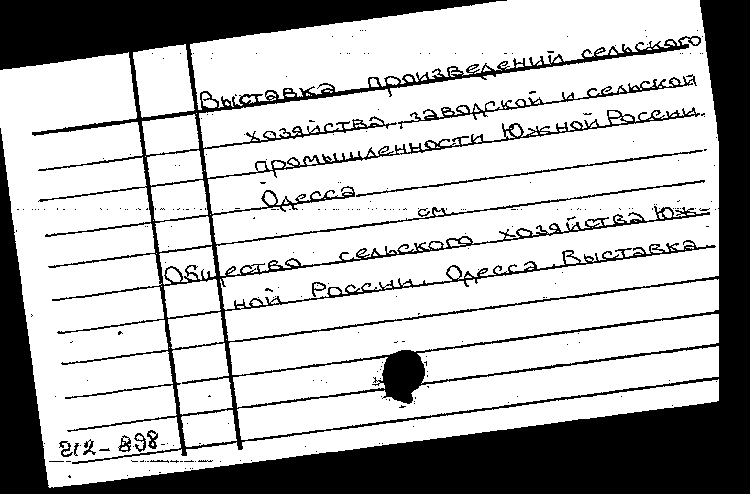 Выставка произведений сельского
хозяйства, заводской и сельской
промышленности Южной России.
Одесса
см.
Общество сельского хозяйства Юж-
ной России. Одесса. Выставка.
212-898